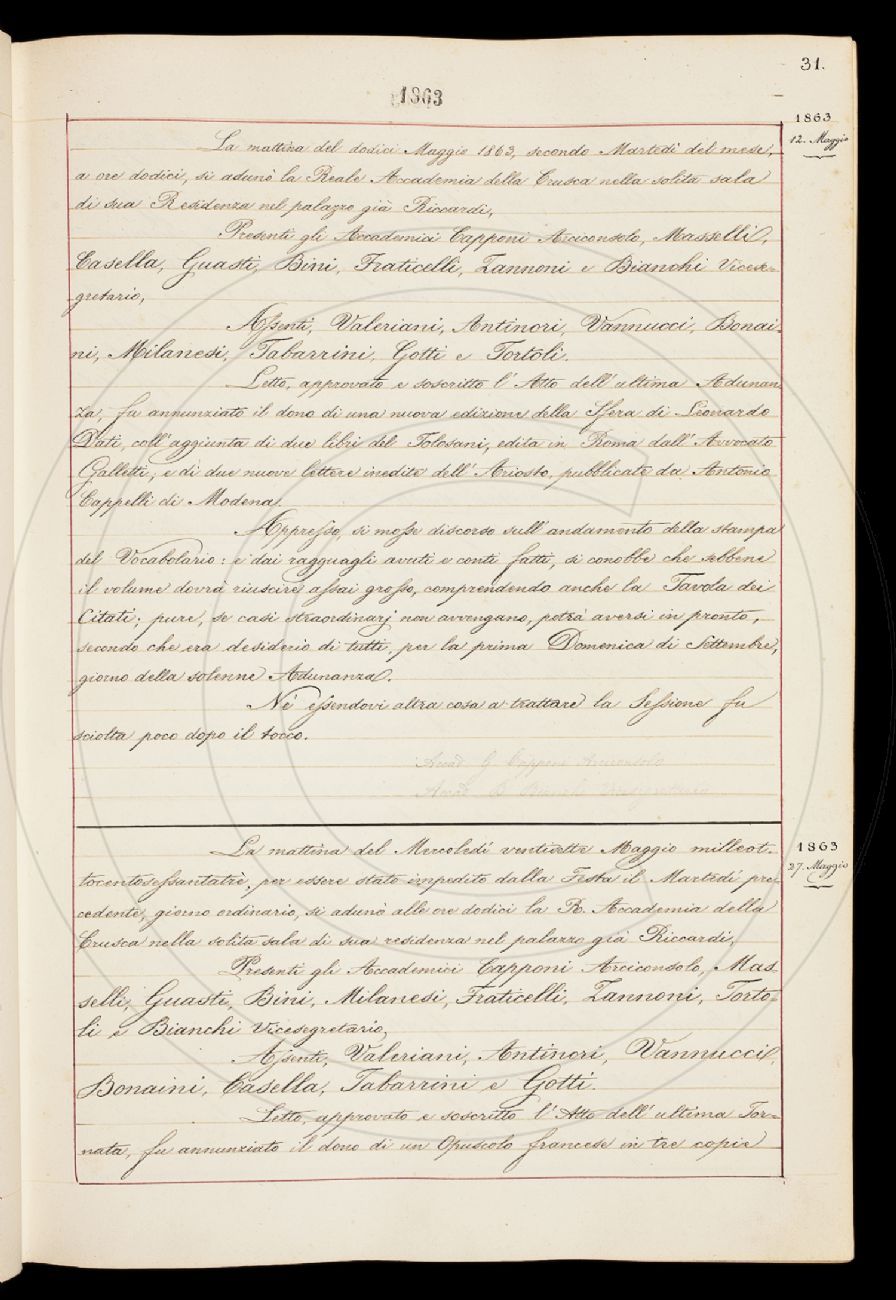 31.
1863
1863
12. Maggio
La mattina del dodici Maggio 1863, secondo Martedì del mese,
a ore dodici, si adunò la Reale Accademia della Crusca nella solita sala
di sua Residenza nel palazzo già Riccardi,
Presenti gli Accademici Capponi Arciconsolo, Masselli,
Casella, Guasti, Bini, Fraticelli, Zannoni e Bianchi Vicese=
gretario,
Assenti, Valeriani, Antinori, Vannucci, Bonai-
ni, Milanesi, Tabarrini, Gotti e Tortoli.
Letto, approvato e soscritto l'Atto dell'ultima Adunan
za, fu annunziato il dono di una nuova edizione della Sfera di Leonardo
Dati, coll'aggiunta di due libri del Tolosani, edita in Roma dall'Avvocato
Galletti; e di due nuove lettere inedite dell'Ariosto, pubblicate da Antonio
Cappelli di Modena.
Appresso, si mosse discorso sull'andamento della stampa
del Vocabolario: e dai ragguagli avuti e conti fatti, si conobbe che sebbene
il volume dovrà riuscire assai grosso, comprendendo anche la Tavola dei
Citati; pure, se casi straordinarj non avvengano, potrà aversi in pronto,
secondo che era desiderio di tutti, per la prima Domenica di Settembre,
giorno della solenne Adunanza.
Nè essendovi altra cosa a trattare la Sessione fu
sciolta poco dopo il tocco.
Accad. G. Capponi Arciconsolo
Accad. B. Bianchi Vicesegretario
1863
27. Maggio
La mattina del Mercoledì ventisette Maggio milleot-
tocentosessantatrè, per essere stato impedito dalla Festa il Martedì pre-
cedente, giorno ordinario, si adunò alle ore dodici la R. Accademia della
Crusca nella solita sala di sua residenza nel palazzo già Riccardi,
Presenti gli Accademici Capponi Arciconsolo, Mas
selli, Guasti, Bini, Milanesi, Fraticelli, Zannoni, Torto=
li e Bianchi Vicesegretario,
Assenti, Valeriani, Antinori, Vannucci,
Bonaini, Casella, Tabarrini e Gotti.
Letto, approvato e soscritto l'Atto dell'ultima Tor=
nata, fu annunziato il dono di un Opuscolo francese in tre copie